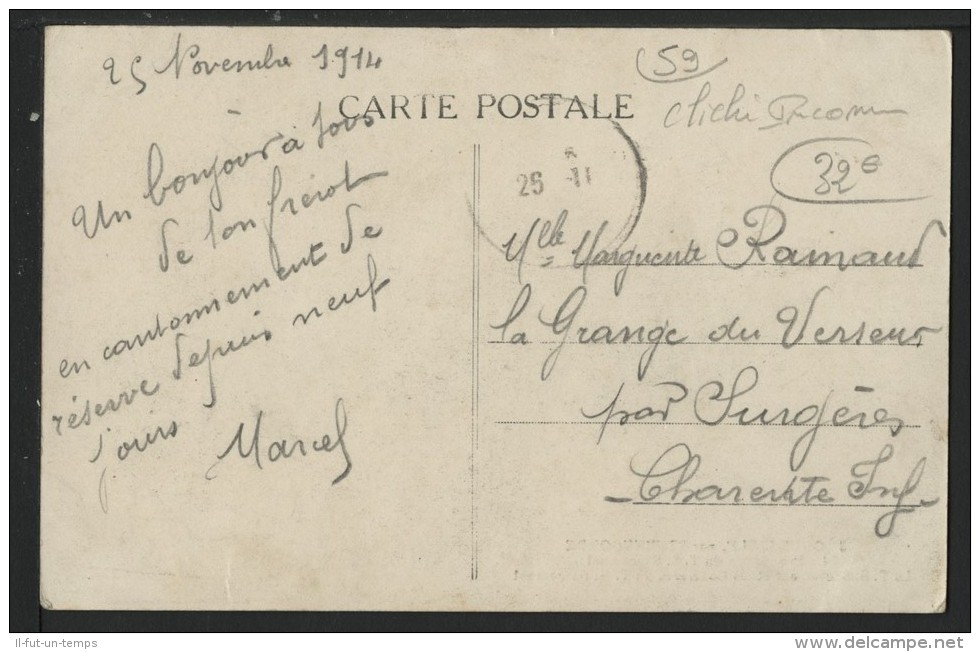 25 Novembre 1914
59
CARTE POSTALE
cliché
32€
Un bonjour à tous
de ton frérot
en cantonnement de
réserve depuis neuf
jours
Marcel
26 -11
Mlle Marguerite Rainaud
la Grange du Verseur
par Surgères
- Charente Inf -
il-fut-un-temps
www.delcampe.net